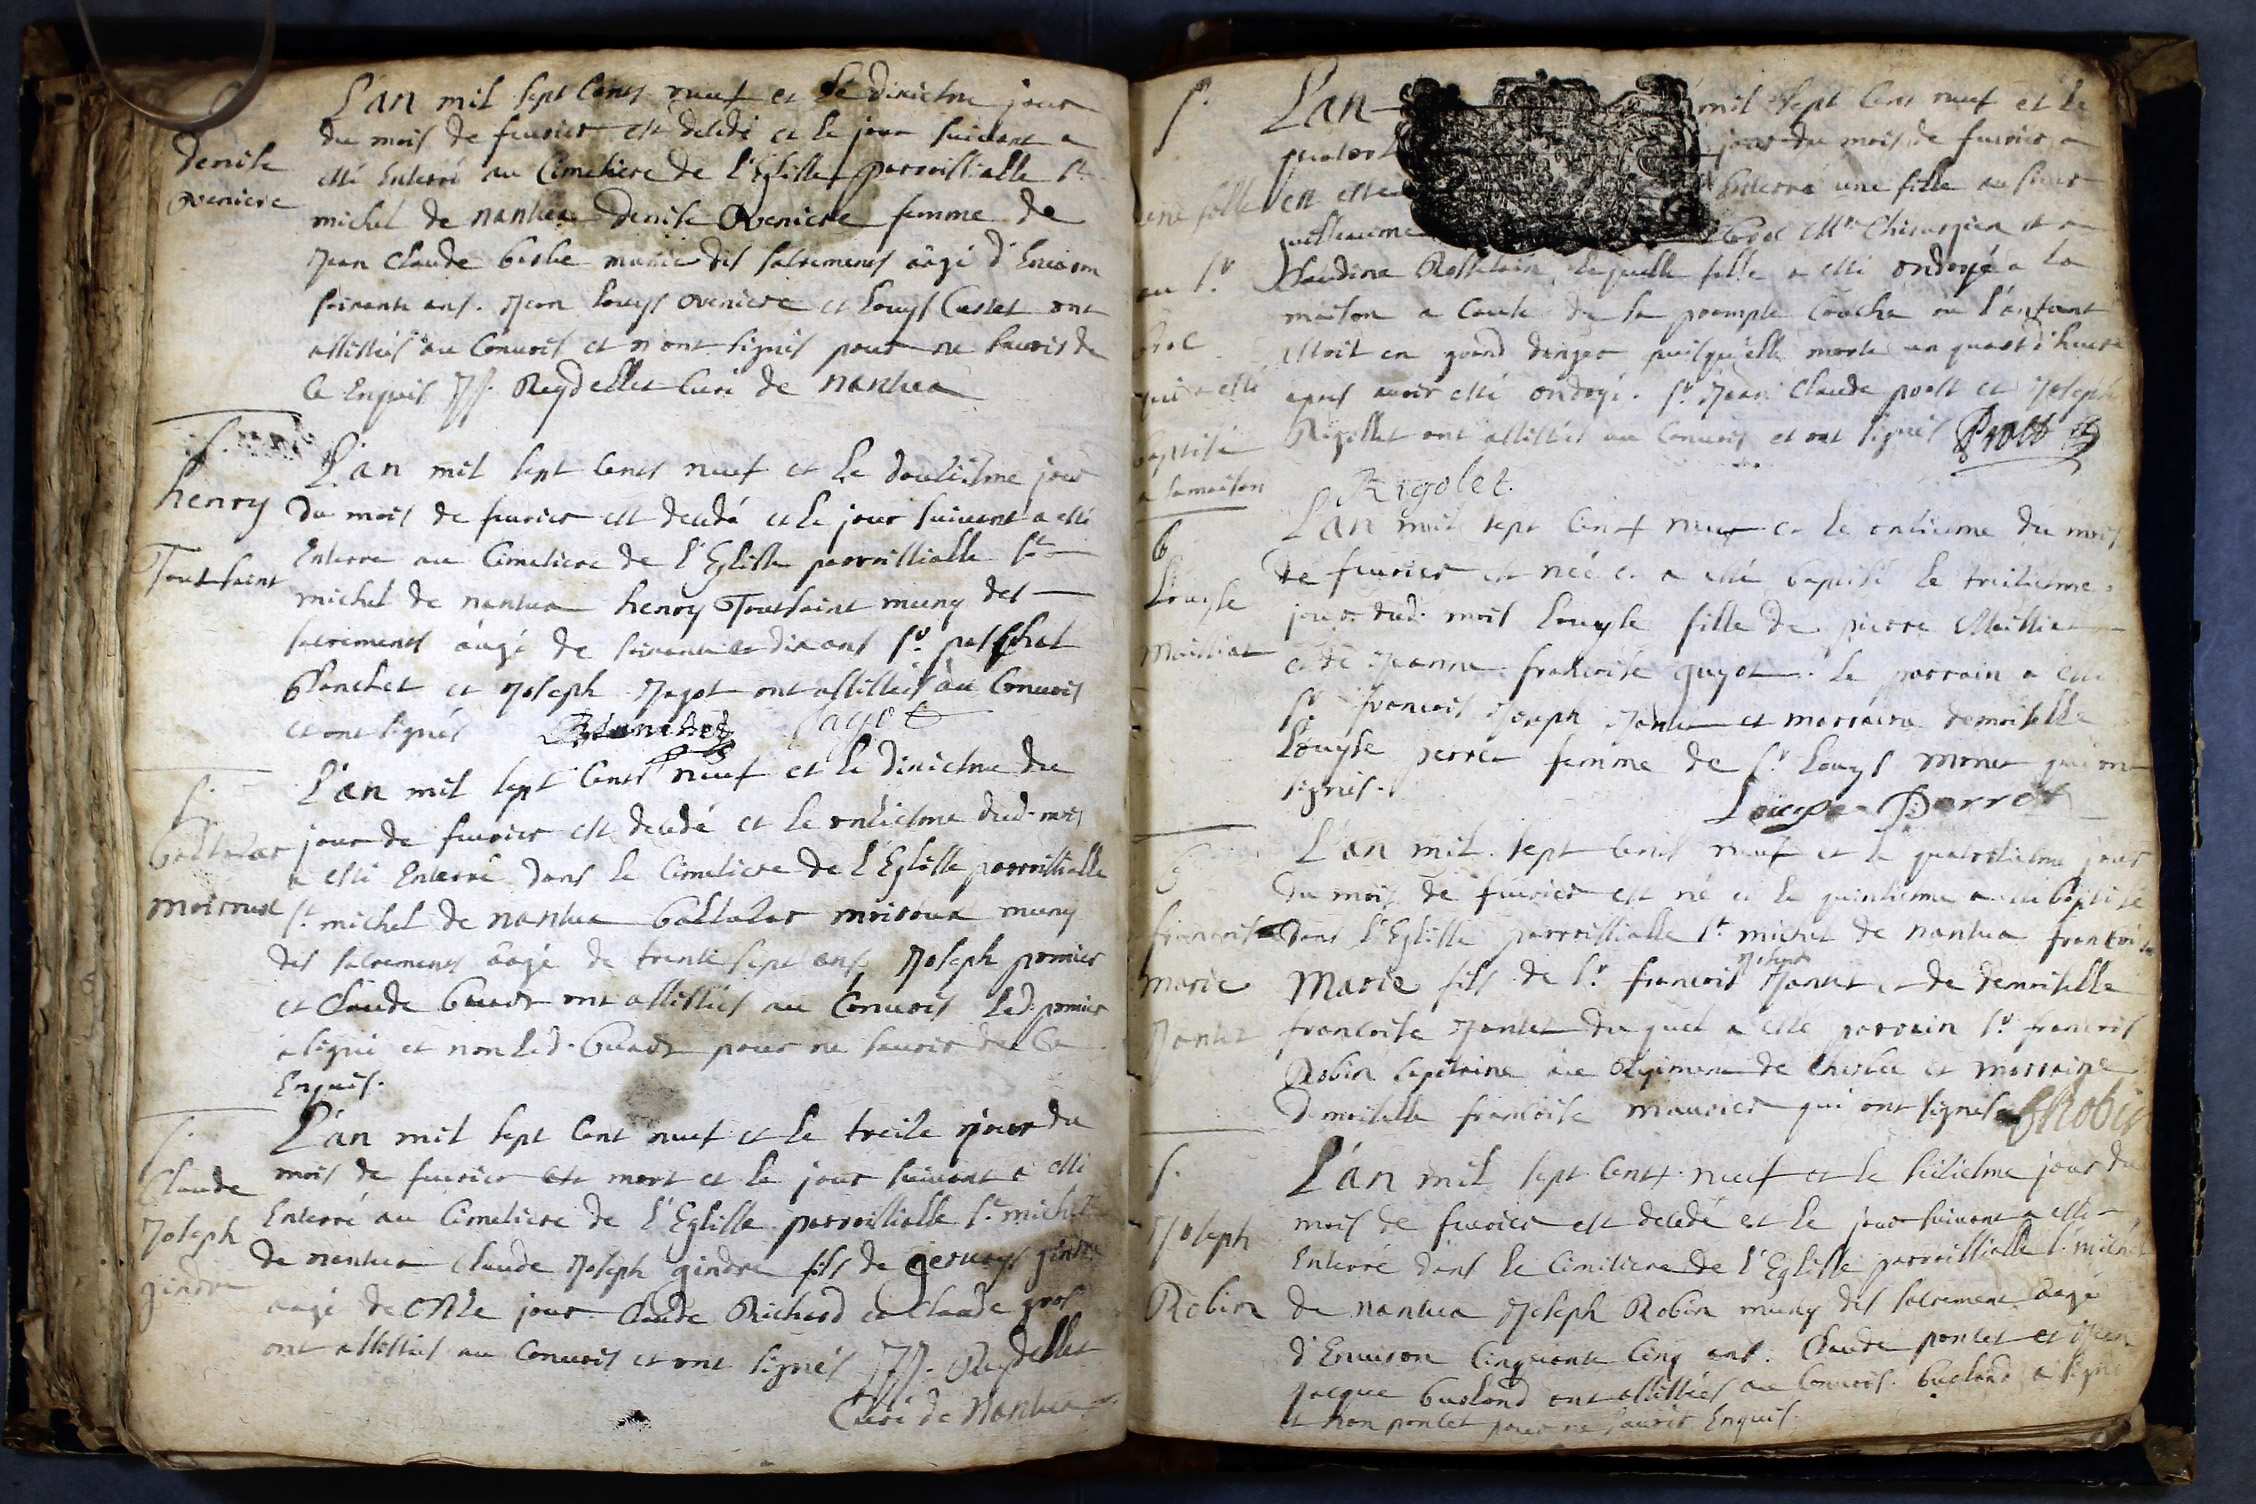 denise
Oveniere
L'an mil sept Cents neuf et le dixiesme jour
du mois de feurier est decedé et le jour suiuant a
esté Enterré au Cimetiere de l'Eglisse parroissialle St
michel de nantua Denise Oveniere femme de
Jean Claude berlie munie des sacrements aagé d'Enuiron
soixante ans. Jean Louys oveniere et Louys Castet ont
assistés au Conuois et n'ont signés pour ne scauoir de
Ce Enquis JJ. Reydellet Curé de nantua
S.
henry
Toutsaint
L'an mil sept Cents neuf et le douziesme jour
du mois de feurier est decedé et le jour suiuant a esté
Enterre au Cimetiere de l'Eglisse parroissialle St
michel de nantua henry Toutsaint muny des
sacrements aagé de soixante et dix ans Sr paschal
Blanchet et Joseph Jagot ont assistés au Conuois
et ont signés Blanchet Jagot
S.
baltazar
moiroux
L'an mil sept Cents neuf et le dixiesme du
jour de feurier est decedé et le onziesme dud. mois
a esté Enterré dans le Cimetiere de l'Eglisse parroissialle
St michel de nantua baltazar moiroux muny
des sacrements aagé de trente sept ans Joseph pomier
et Claude buadt ont assistés au Conuois Led. pomier
a signé et non Led. buadt pour ne scauoir de Ce
Enquis.
S.
Claude
Joseph
gindre
L'an mil sept Cent neuf et le treize jour du
mois de feurier est mort et le jour suiuant a esté
Enterré au Cimetiere de l'Eglisse parroissialle St michel
de nantua Claude Joseph gindre fils de geruays gindre
aagé de onze jour. Claude Richard et Claude gros
ont assistés au Conuois et ont signés JJ. Reydellet
Curé de Nantua
S.
une fille
au Sr
qui a esté
baptisé
a la maison
L'an mil sept Cens neuf et le
jour du mois de feurier a
en esté Enterré une fille au sieur
guillaume Mtre Chirurgien et a
Claudine Rosselain, laquelle fille a esté ondoyé a la
maison a Cause de la prompte Couche ou l'anfant
estoit en grand danger puisqu'elle morte un quart d'heure
apres auoir esté ondoyé. Sr Jean Claude prost et Joseph
Rigollet ont assistés au Conuois et ont signés Prost
Rigolet.
b
Louyse
Maissiat
L'an mil sept Cent neuf et le onzieme du mois
de feurier est née et a esté baptisé le treizieme
jour dud. mois Louyse fille de pierre Maissiat
et de Jeanne francoise guyot. Le parrain a esté
Sr francois Joseph Jantet et marraine demoiselle
Louyse perret femme de Sr Louys monet qui ont
signés.
Louyse Perret
b
francois
marie
Jantet
L'an mil sept Cents neuf et le quatorziesme jour
du mois de feurier est né et le quinzieme a esté baptisé
dans l'Eglisse parroissialle St michel de nantua francois
Marie fils de Sr francois Joseph Jantet et de demoiselle
francoise Jantet du quel a esté parrain Sr francois
Robin Capitaine au Regiment de et marraine
Demoiselle francoise maurier qui ont signés Robin
S.
Joseph
Robin
L'an mil sept Cent neuf et le seiziesme jour du
mois de feurier est decedé et le jour suiuant a esté
Enterré dans le Cimitiere de l'Eglisse parroissialle St michel
de nantua Joseph Robin muny des sacrement aagé
d'Enuiron Cinquante Cinq ans. Claude poncet et Jean
Jacque buoland ont assistés au Conuois. buoland a signé
et non poncet pour ne scauoir Enquis.